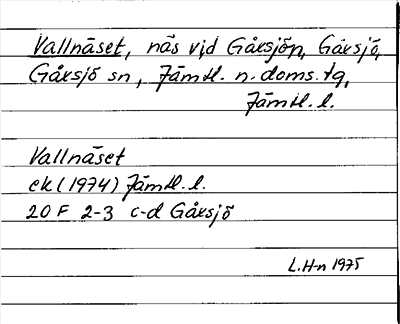 Vallnäset, näs vid Gåxsjön, Gåxsjö,
Gåxsjö sn, Jämtl. n. doms. tg,
Jämtl. l.
Vallnäset
ek (1974) Jämtl. l.
20 F 2-3 c-d Gåxsjö
L.H-n 1975